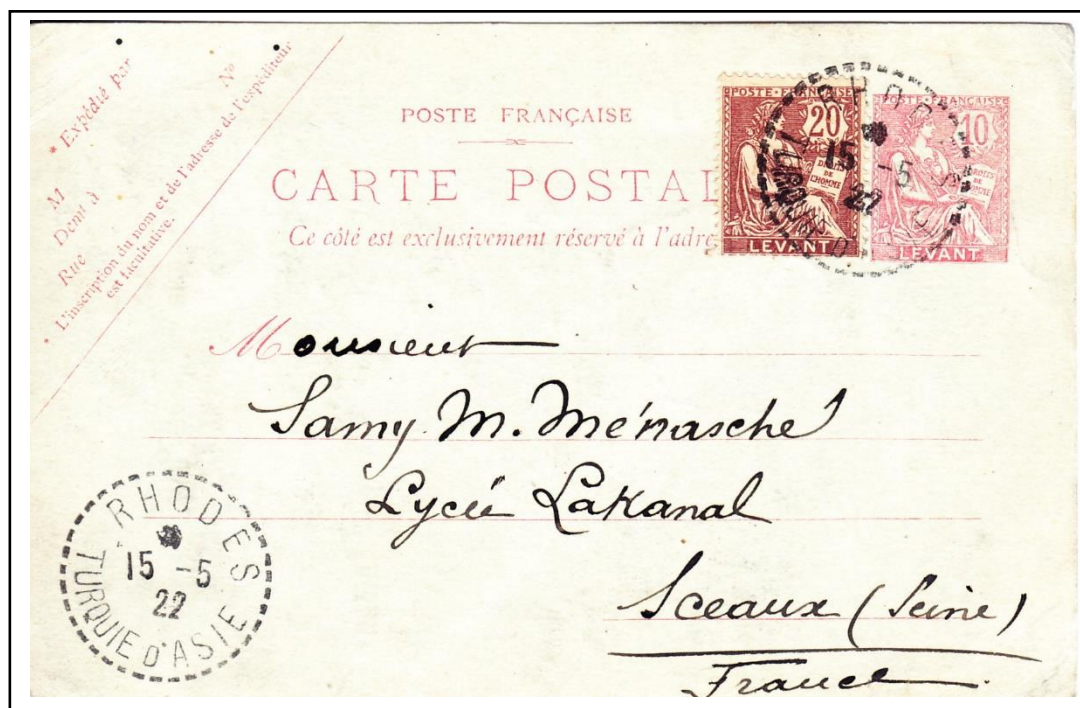 * Expédié par
M
Demt à
Rue
N°
L'inscription du nom et de l'adresse de l'expéditeur
est facultative.
POSTE FRANÇAISE
CARTE POSTAL
Ce côté est exclusivement réservé à l'adre
POSTE FRANÇAISE
20
DROITS
DE
L'HOMME
LEVANT
POSTE FRANÇAISE
10
DROITS
DE
L'HOMME
LEVANT
RHODES
15 -5
22
TURQUIE D'ASIE
Monsieur
Samy M. Ménasché
Lycée Lakanal
Sceaux (Seine)
France
RHODES
15 -5
22
TURQUIE D'ASIE